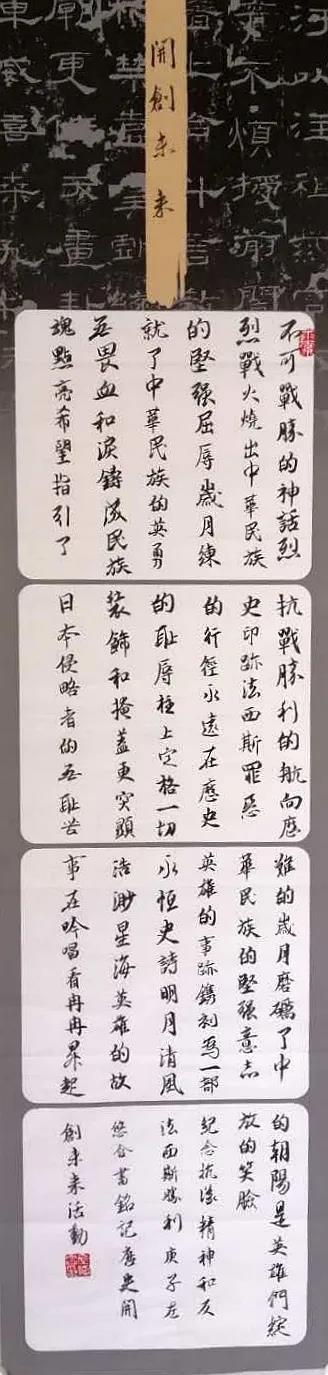 開創未来
不可戰勝的神話烈
烈戰火燒出中華民族
的堅强屈辱歲月練
就了中華民族的英勇
无畏血和淚鑄成民族
魂點亮希望指引了
抗戰勝利的航向歷
史印跡法西斯罪惡
的行徑永遠在歷史
的耻辱柱上定格一切
裝飾和掩蓋更突顯
日本侵略者的无耻苦
難的歲月磨礪了中
華民族的堅强意志
英雄的事跡鐫刻爲一部
永恒史詩明月清風
浩渺星海英雄的故
事在吟唱看冉冉昇起
的朝陽是英雄們綻
放的笑臉
紀念抗疫精神和反
法西斯勝利庚子左
悠谷書銘記歷史開
創未来活動